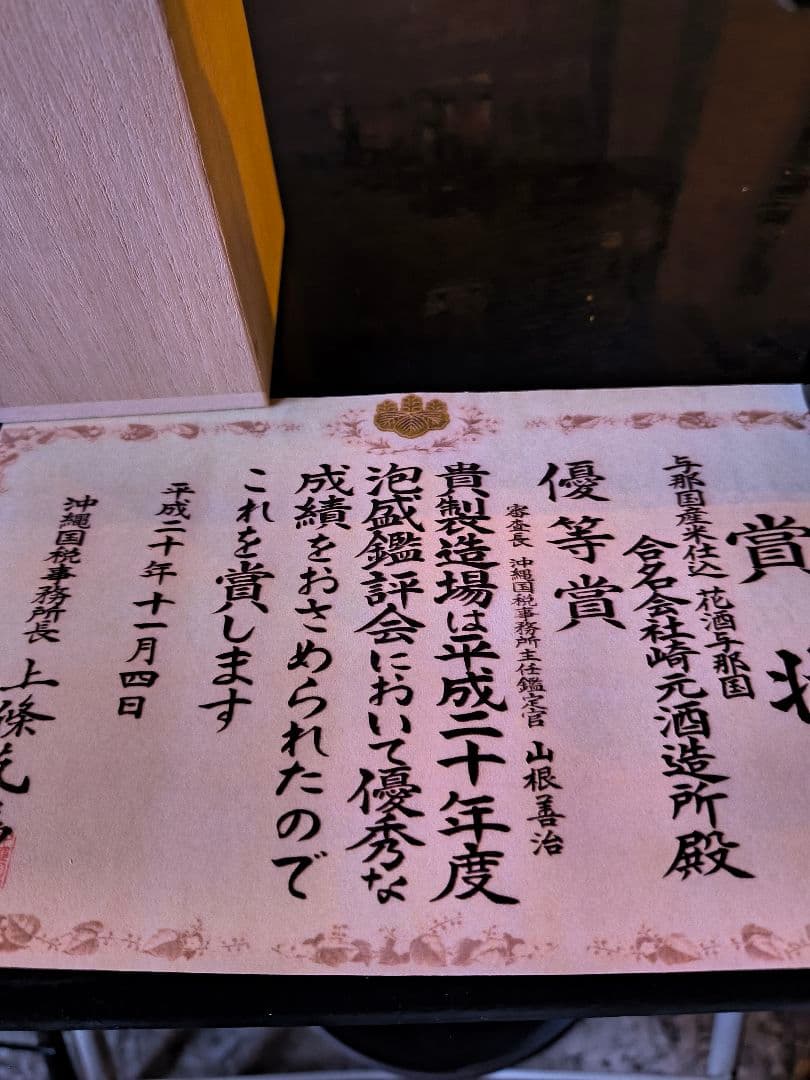 賞状
与那国産米仕込 花酒与那国
合名会社崎元酒造所殿
優等賞
審査長 沖縄国税事務所主任鑑定官 山根善治
貴製造場は平成二十年度
泡盛鑑評会において優秀な
成績をおさめられたので
これを賞します
平成二十年十一月四日
沖縄国税事務所長 上篠